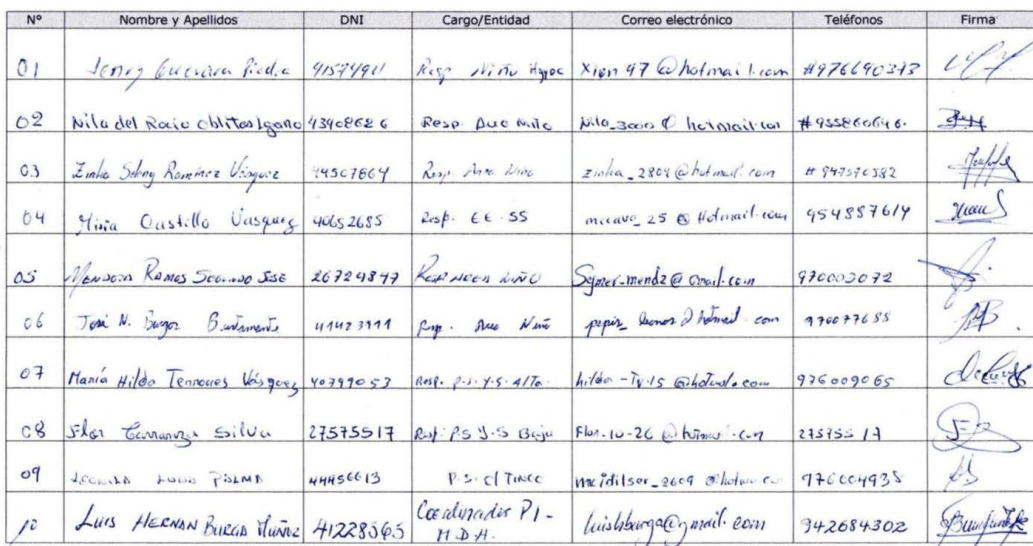 N° Nombre y Apellidos DNI Cargo/Entidad Correo electrónico Teléfonos Firma
01 Jenry Guevara Piedra Resp Niño Hypoc Xion 97 @hotmail.com #976690373
02 Nila del Rocio Oblitas 43408626 Resp. Area Niño Nila_3000 @ hotmail.com #955860646.
03 Zinha Ramírez Vásquez 44507864 Resp. Area Niño zinha_2804 @hotmail.com # 947570382
04 Castillo Vasquez 40652685 Resp. EE.SS micava_25 @ Hotmail.com 954887614
05 Mendoza Ramos Segundo José 26724847 Niño @ gmail.com 970003072
06 José N. Burgos Bustamante 41423911 Resp. Area Niño @ hotmail.com 976077688
07 María Hilda Terrones Vásquez 40799053 Resp. P.S. Y.S. Alto. @hotmail.com 976009065
08 Flor Carranza Silva 27575517 Resp. PS Y.S Bajo Flor.10-26 @hotmail.com 27575517
09 44456613 P.S. El Tinco @hotmail.com 976004935
10 Luis Hernan Burga Muñoz 41228565 Coordinador PI-
M.D.H. luishburga@gmail.com 942684302